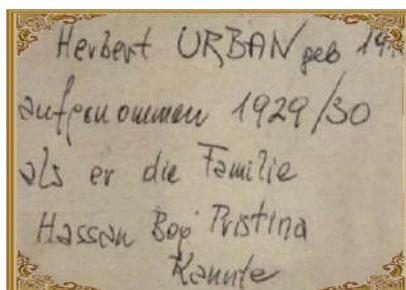 Herbert URBAN geb 19
aufgenommen 1929/30
als er die Familie
Hassan Beg Pristina
Kannte